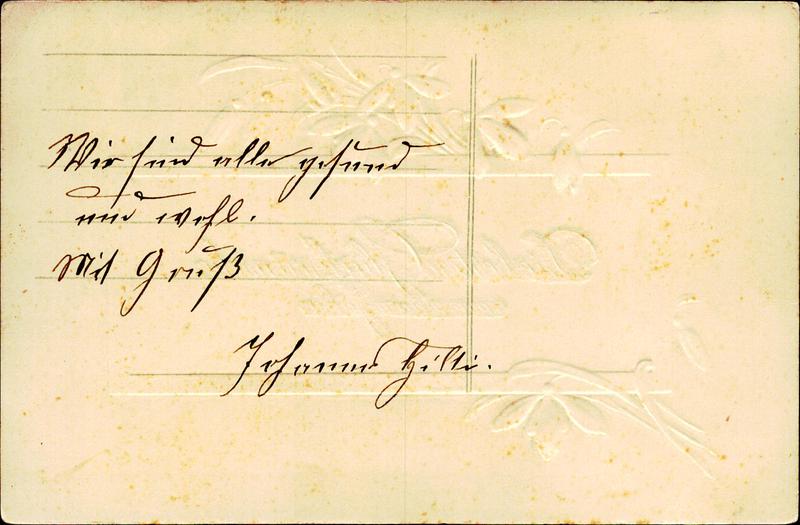 Wir sind alle gesund
und wohl.
Mit Gruß
Johannes Hilti.